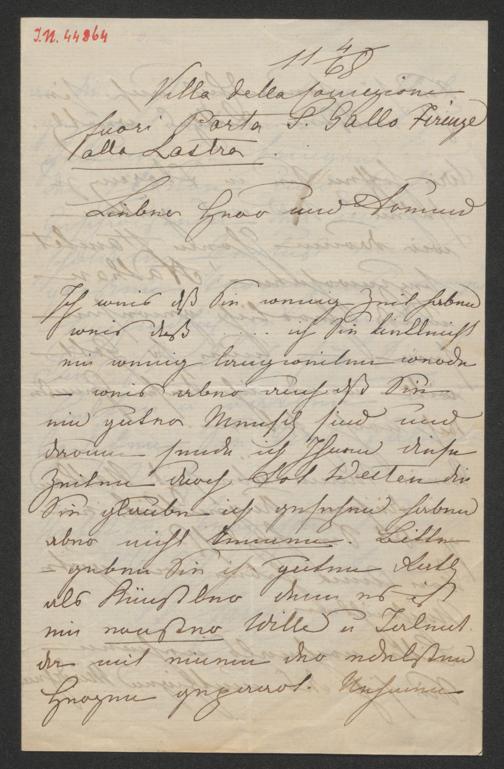 I.N. 44864
11 4/68
Villa della
fuori Porta S. Gallo Firenze
alla Lastra
Lieber Herr und Freund
Ich weis daß Sie wenig Zeit haben
weis daß .... ich Sie vielleicht
ein wenig langweilen werde
– weis aber auch daß Sie
ein guter Mensch sind und
darum sende ich Ihnen diese
Zeilen durch Lot Welten die
Sie glaube ich gesehen haben
aber nicht kennen. Bitte
geben Sie ihr guten Rath
als Künstler denn es ist
ein ernster Wille u Talent
der mit einem der edelsten
Herzen gepaart.